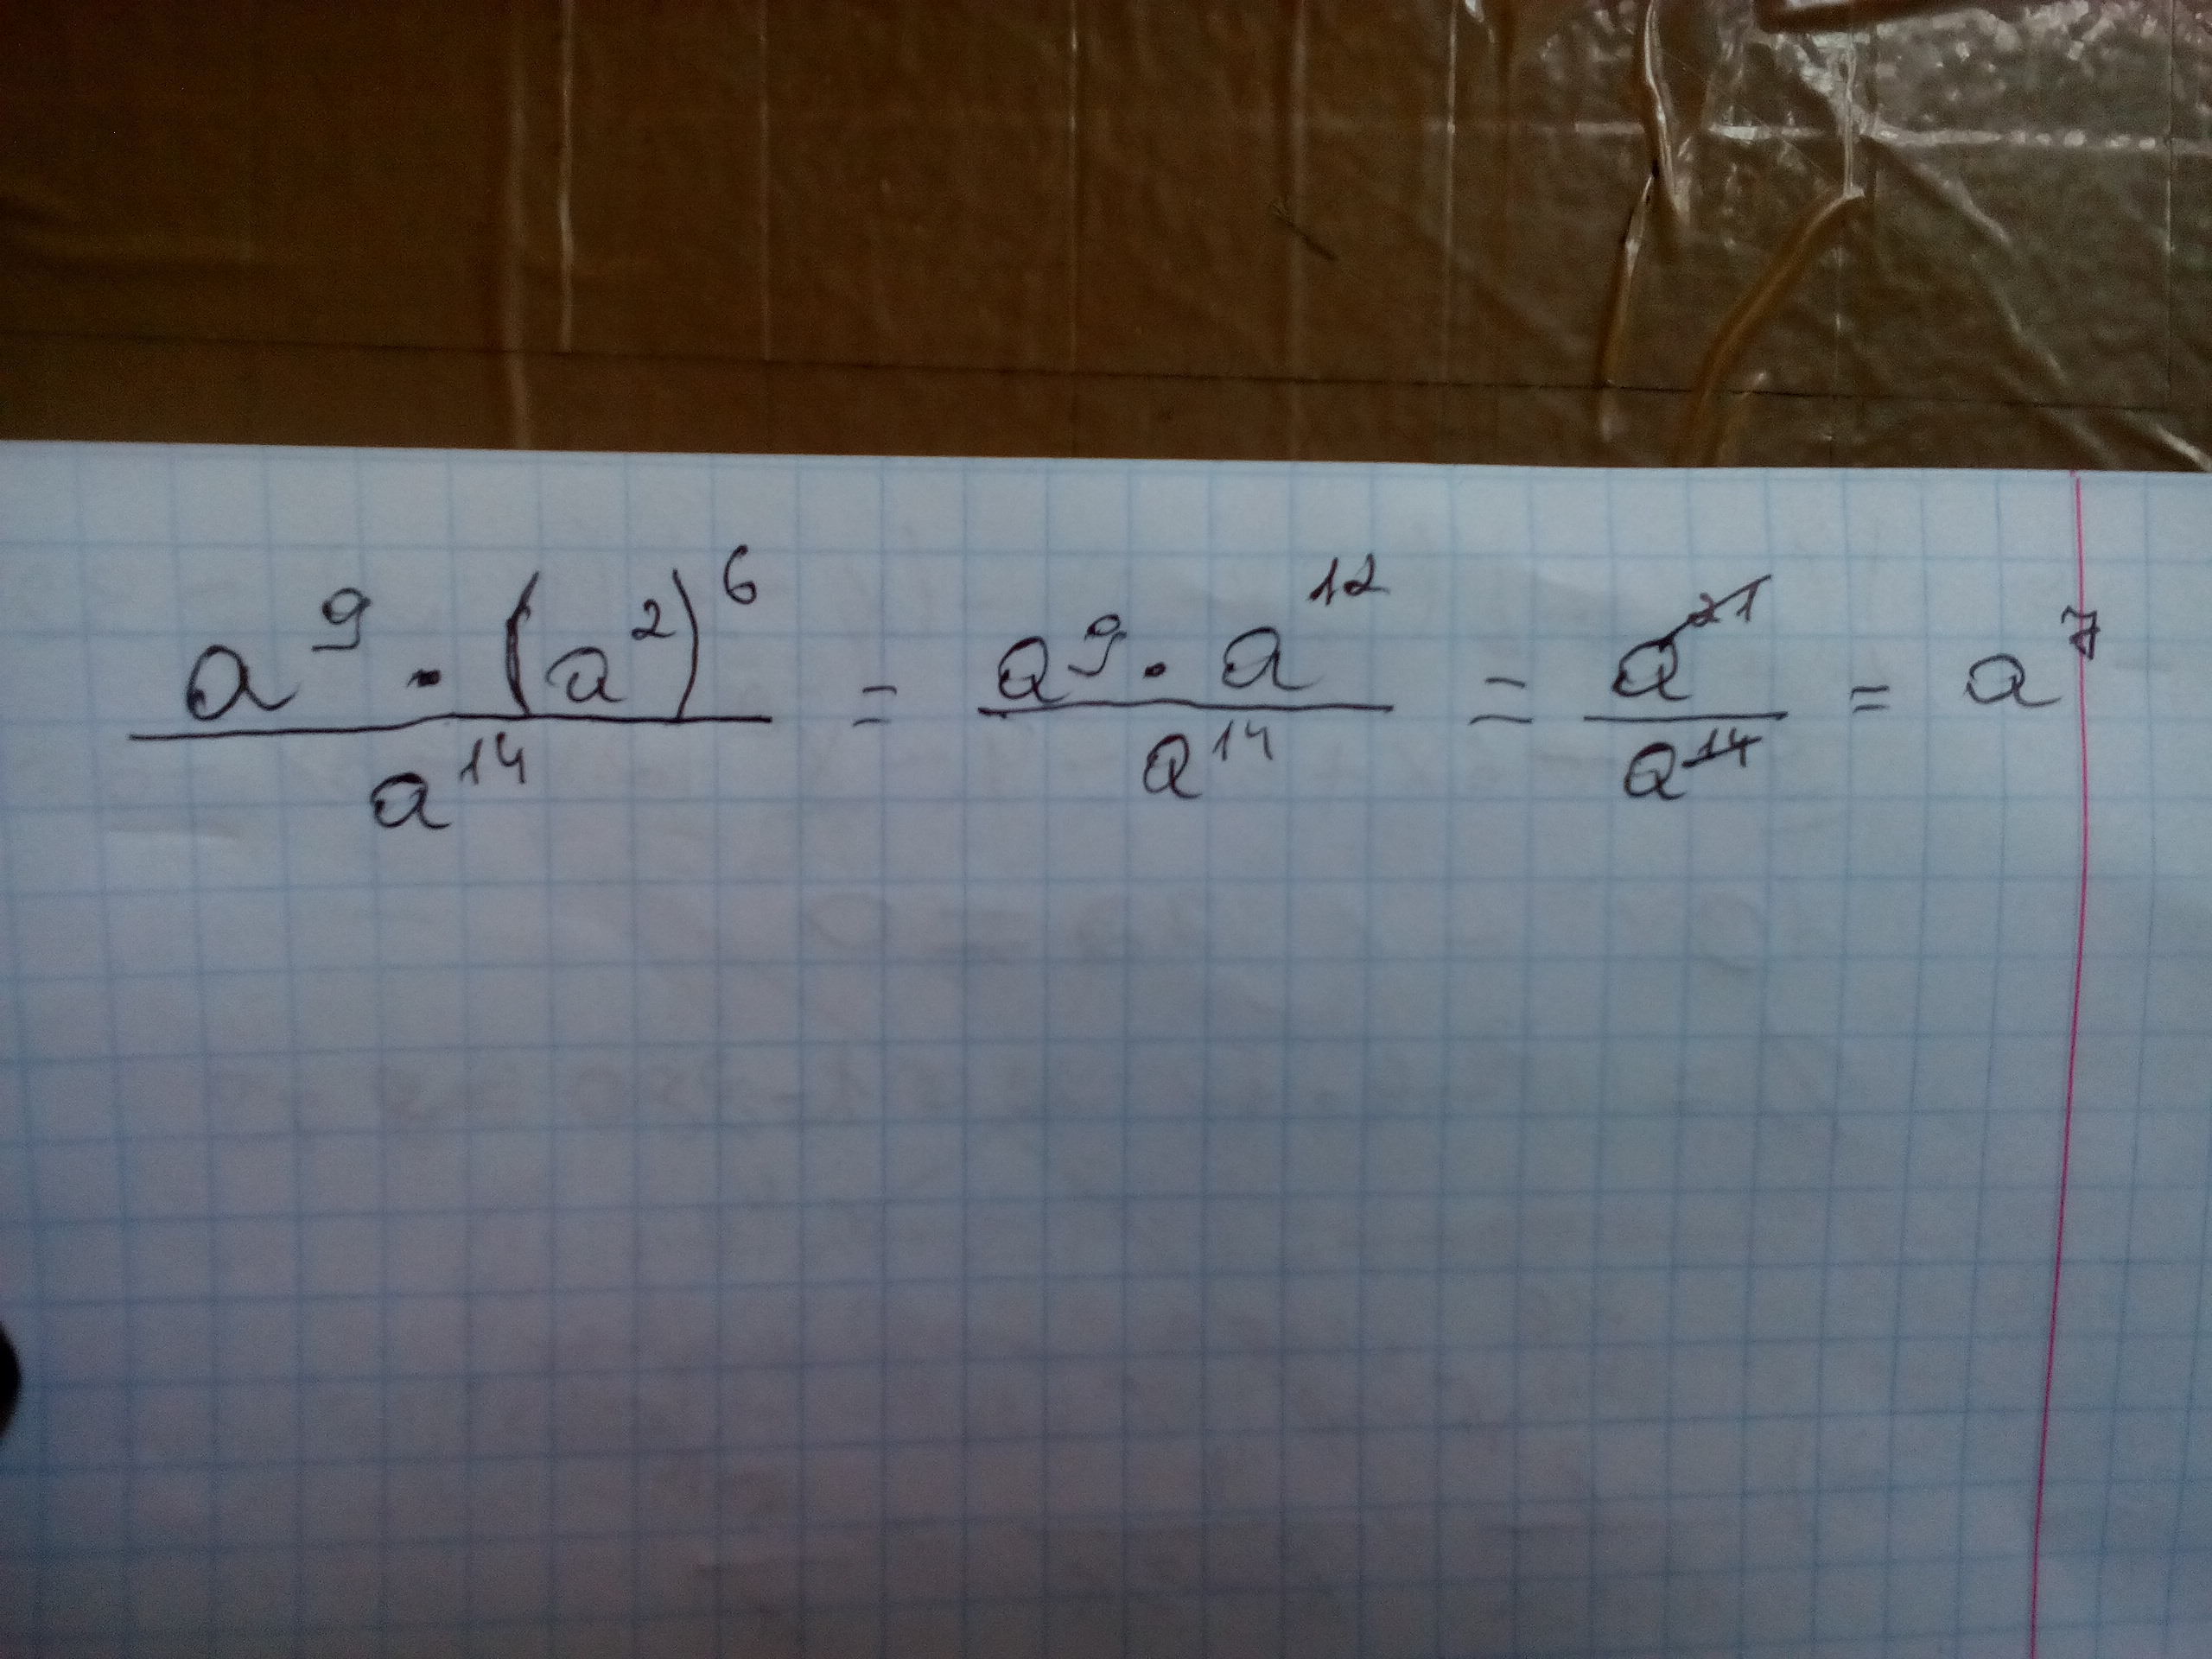 \frac{a^9 \cdot (a^2)^6}{a^{14}} = \frac{a^9 \cdot a^{12}}{a^{14}} = \frac{a^{21}}{a^{14}} = a^7